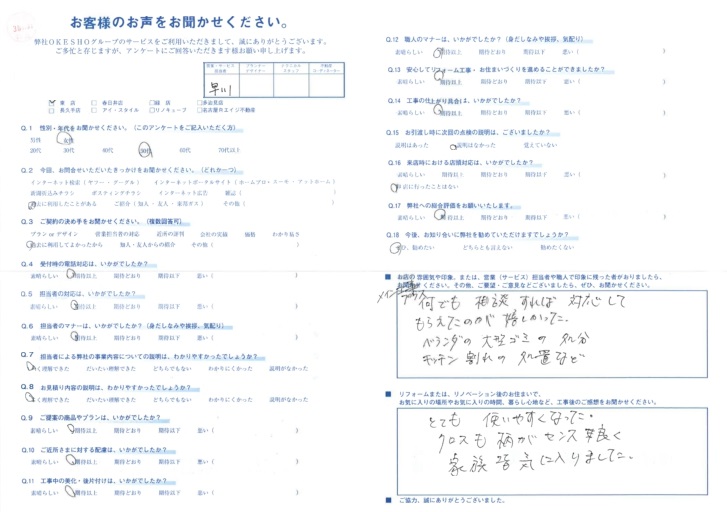 お客様のお声をお聞かせください。
弊社OKESHOグループのサービスをご利用いただきまして、誠にありがとうございます。
ご多忙と存じますが、アンケートにご回答いただきます様お願い申し上げます。
早川
東店 春日井店 緑店
長久手店 アイ・スタイル リノキューブ 名古屋カエイジ不動産
Q.1 性別・年代をお聞かせください。(このアンケートをご記入いただく方)
男性 女性
20代 30代 40代 50代 60代 70代以上
Q.2 今回、お問合せいただいたきっかけをお聞かせください。(どれか一つ)
新聞折込みチラシ ポスティングチラシ インターネット広告 雑誌( )
過去に利用したことがある ご紹介(知人・友人・東邦ガス) その他( )
Q.3 ご契約の決め手をお聞かせください。(複数回答可)
プラン or デザイン 営業担当者の対応 近所の評判 会社の実績 価格 わかり易さ
過去に利用してよかったから 知人・友人からの紹介 その他( )
Q.4 受付時の電話対応は、いかがでしたか?
素晴らしい 期待以上 期待どおり 期待以下 悪い( )
Q.5 担当者の対応は、いかがでしたか?
素晴らしい 期待以上 期待どおり 期待以下 悪い( )
Q.6 担当者のマナーは、いかがでしたか?(身だしなみや挨拶、気配り)
素晴らしい 期待以上 期待どおり 期待以下 悪い( )
Q.7 担当者による弊社の事業内容についての説明は、わかりやすかったでしょうか?
よく理解できた だいたい理解できた どちらでもない わかりにくかった 説明がなかった
Q.8 お見積り内容の説明は、わかりやすかったでしょうか?
よく理解できた だいたい理解できた どちらでもない わかりにくかった 説明がなかった
Q.9 ご提案の商品やプランは、いかがでしたか?
素晴らしい 期待以上 期待どおり 期待以下 悪い( )
Q.10 ご近所さまに対する配慮は、いかがでしたか?
素晴らしい 期待以上 期待どおり 期待以下 悪い( )
Q.11 工事中の美化・後片付けは、いかがでしたか?
素晴らしい 期待以上 期待どおり 期待以下 悪い( )
Q.12 職人のマナーは、いかがでしたか?(身だしなみや挨拶、気配り)
素晴らしい 期待以上 期待どおり 期待以下 悪い( )
Q.13 安心してリフォーム工事・お住まいづくりを進めることができましたか?
素晴らしい 期待以上 期待どおり 期待以下 悪い( )
Q.14 工事の仕上がり具合は、いかがでしたか?
素晴らしい 期待以上 期待どおり 期待以下 悪い( )
Q.15 お引渡し時に次回の点検の説明は、ございましたか?
説明はあった 説明はなかった 覚えていない
Q.16 来店時における店頭対応は、いかがでしたか?
素晴らしい 期待以上 期待どおり 期待以下 悪い( )
お店に行ったことはない
Q.17 弊社への総合評価をお願いいたします。
素晴らしい 期待以上 期待どおり 期待以下 悪い( )
Q.18 今後、お知り合いに弊社を勧めていただけますでしょうか?
ぜひ、勧めたい どちらとも言えない 勧めたくない
■ お店の雰囲気や印象、または、営業(サービス)担当者や職人で印象に残った者がおりましたら、
お聞かせくださいませ。その他、ご要望・ご意見などございましたら、ぜひ、お聞かせください。
何でも 相談 すれば 対応して
もらえたのが 嬉しかった。
ベランダの 大型ゴミの 処分
キッチン 割れの 処置など
■ リフォームまたは、リノベーション後のお住まいで、
お気に入りの場所やお気に入りの時間、暮らし心地など、工事後のご感想をお聞かせください。
とても 使いやすくなった。
クロスも 柄が センス 良く
家族皆気に入りました。
■ ご協力、誠にありがとうございました。